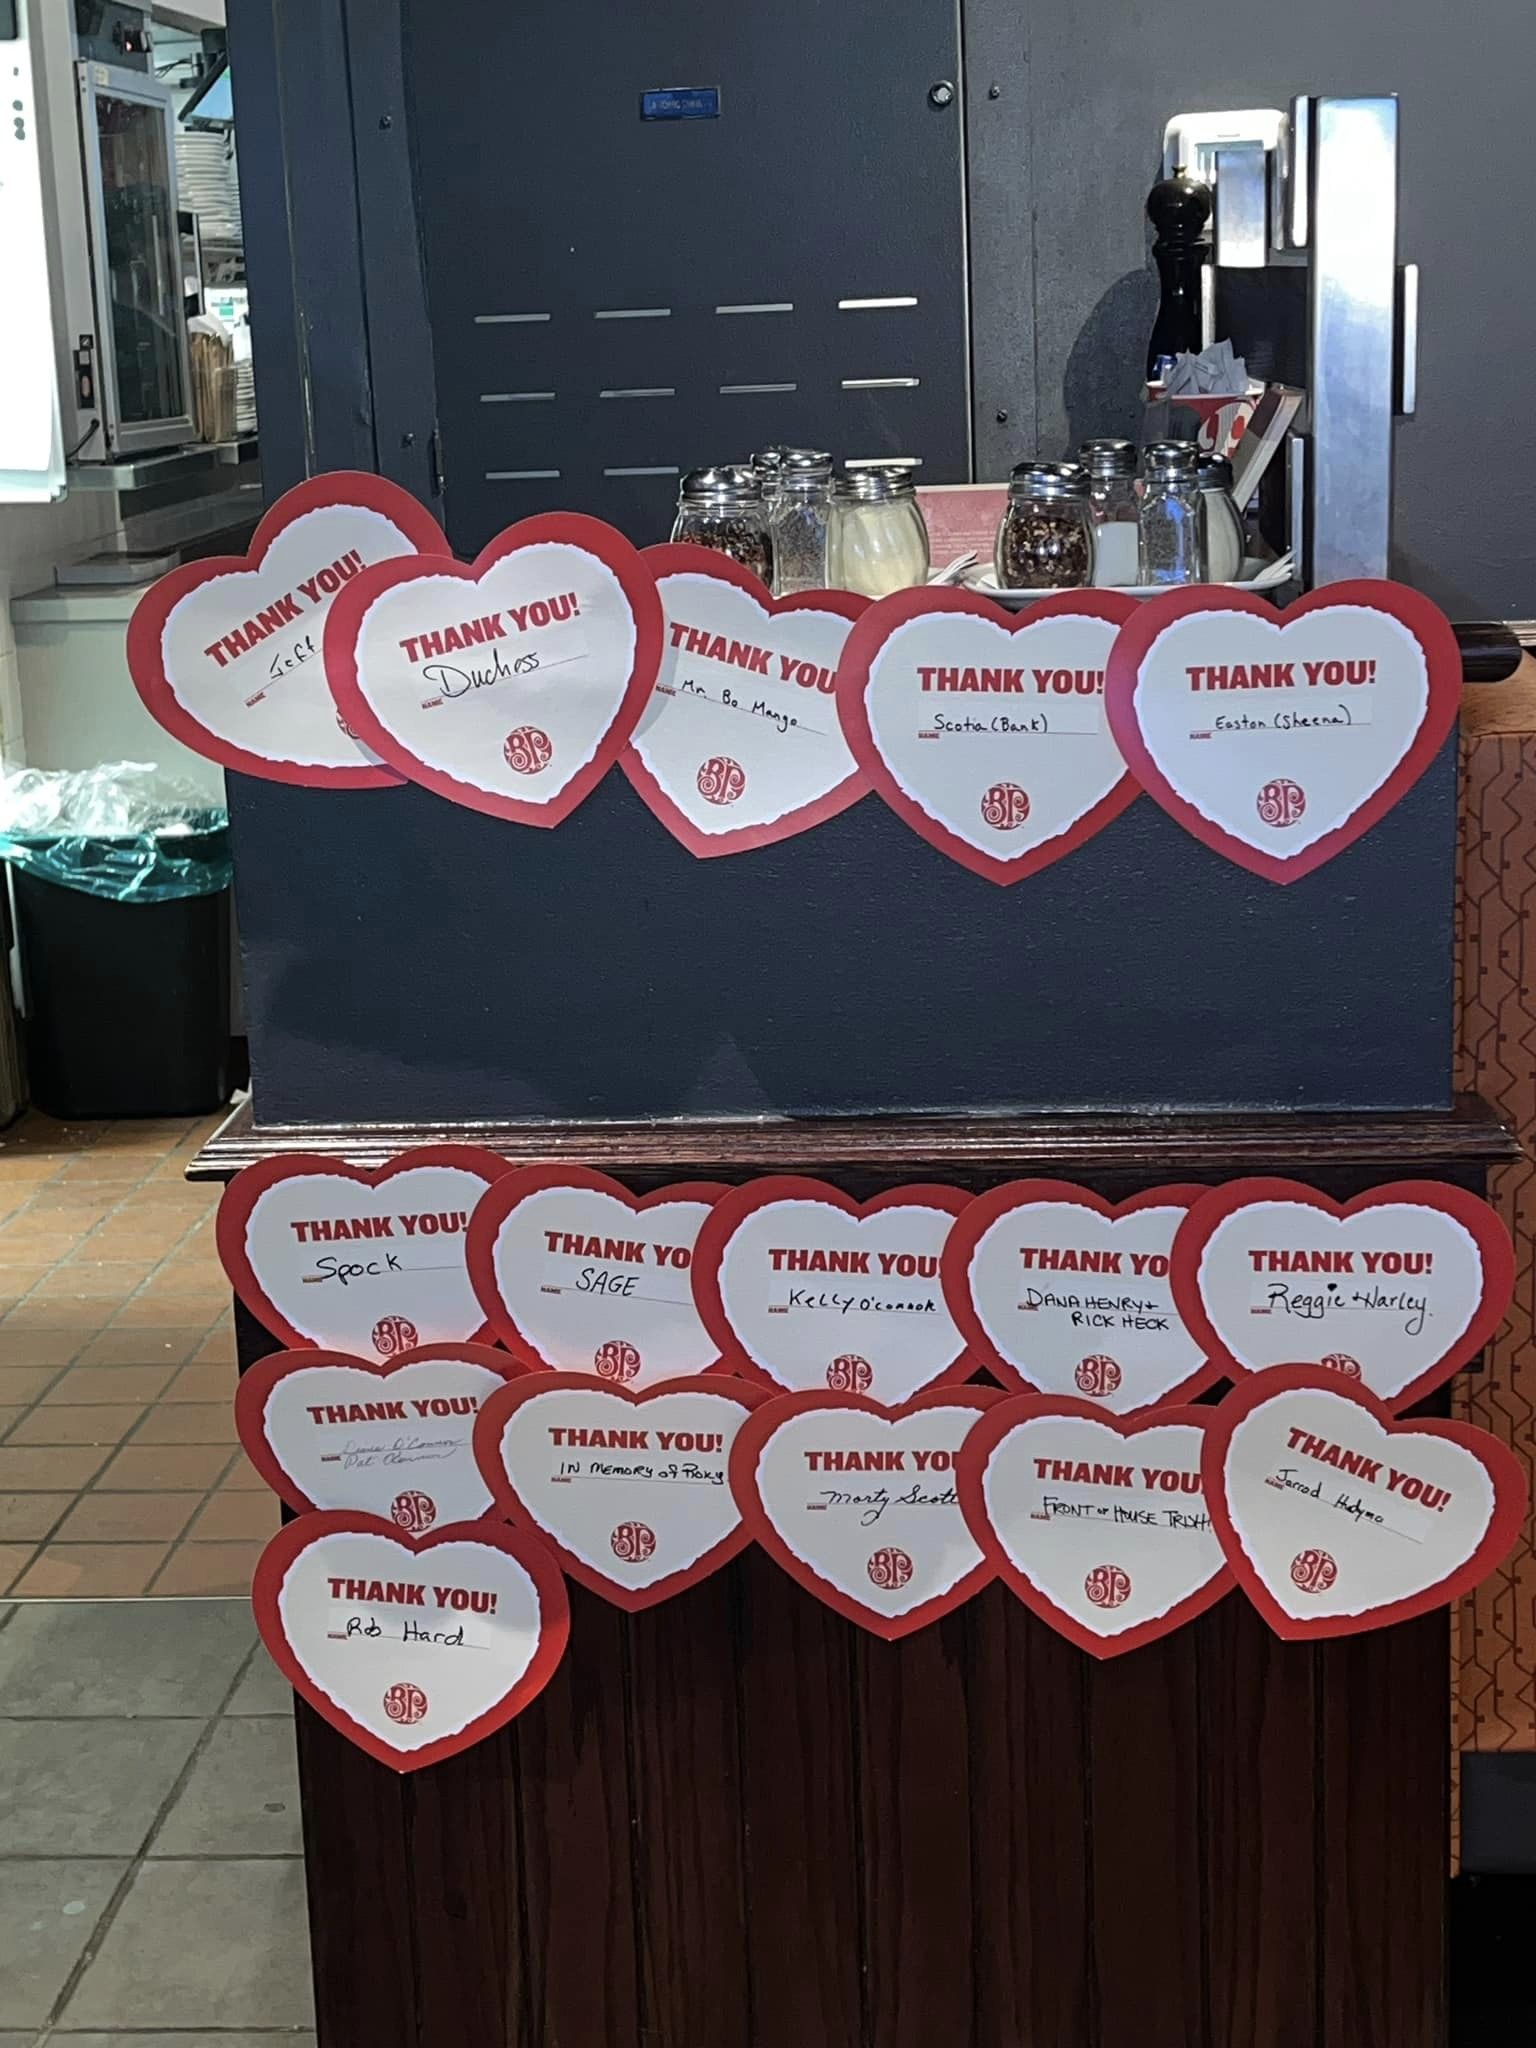 THANK YOU!
NAME Jeff
THANK YOU!
Duchess
NAME
BP
THANK YOU
NAME Mr. Bo Mango
BP
THANK YOU!
Scotia (Bank)
NAME
BP
THANK YOU!
Easton (Sheena)
NAME
BP
THANK YOU!
NAME Spock
BP
THANK YO
NAME SAGE
BP
THANK YOU!
NAME Kelly O'Connor
BP
THANK YO
NAME DANA HENRY +
RICK HECK
BP
THANK YOU!
NAME Reggie + Harley.
BP
THANK YOU!
O'Connor
NAME Pat
BP
THANK YOU!
IN MEMORY OF ROKY
NAME
BP
THANK YO
NAME Marty Scott
BP
THANK YOU
NAME FRONT OF HOUSE
BP
THANK YOU!
NAME Jarrod
BP
THANK YOU!
NAME Rob Hard
BP